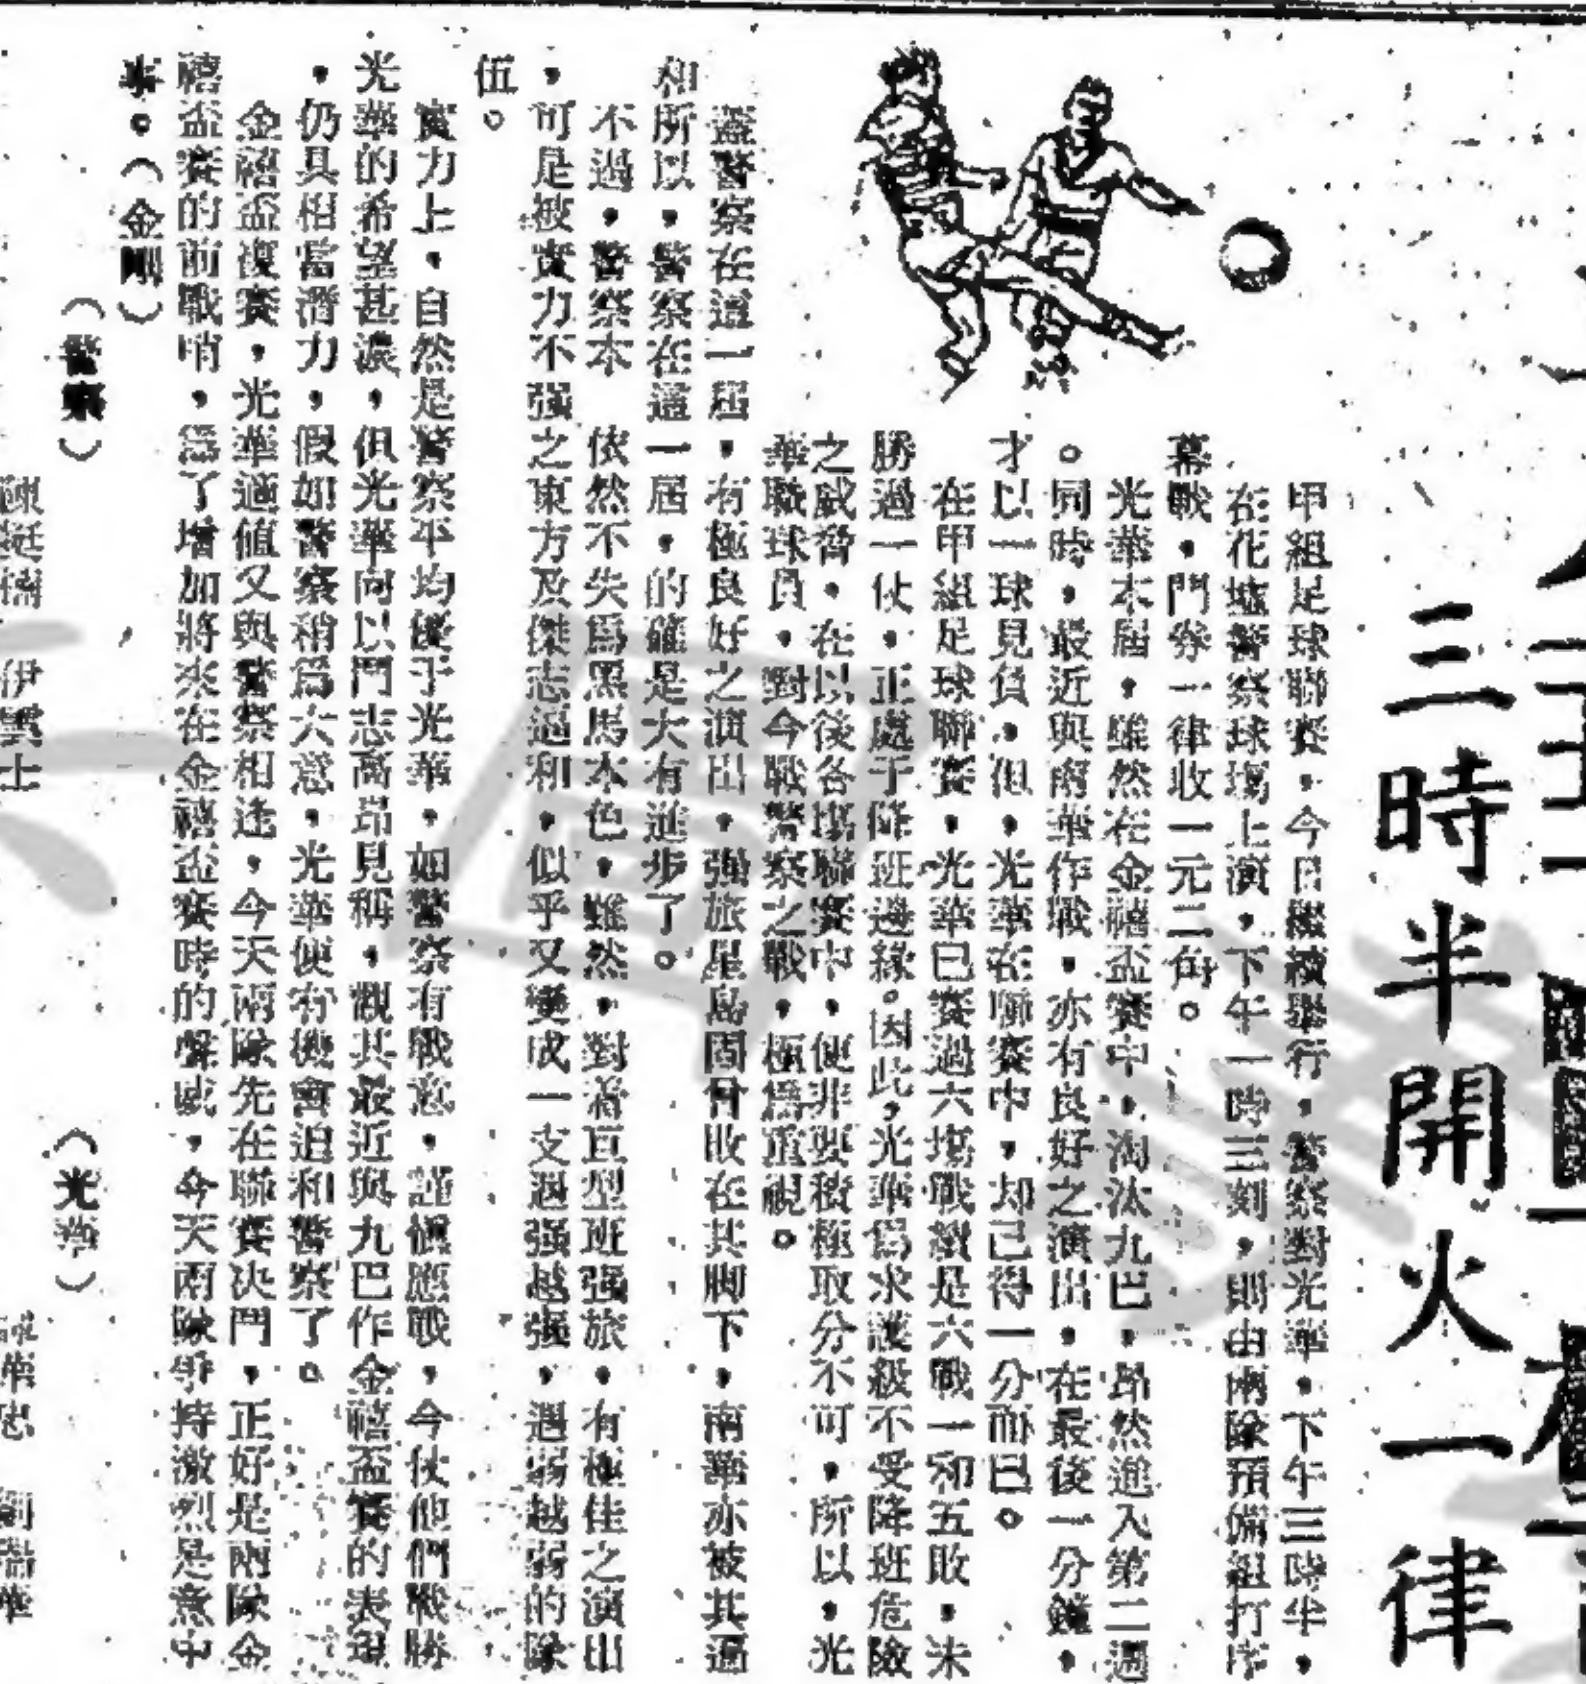 三時半開火一律
甲組足球聯賽,今日繼續舉行,警察對光華,下午三時半,
在花墟警察球場上演,下午一時三刻,則由兩隊預備組打序
幕戰,門券一律收一元二角。
光華本屆,雖然在金禧盃賽中,淘汰九巴,昂然進入第二週
。同時,最近與南華作戰,亦有良好之演出,在最後一分鐘,
才以一球見負,但,光華在聯賽中,却已得一分而已。
在甲組足球聯賽,光華已賽過六場戰績是六戰一和五敗,未
勝過一仗,正處于降班邊緣。因此,光華爲求護級不受降班危險
之威脅,在以後各場聯賽中,便非要積極取分不可,所以,光
華職球員,對今戰警察之戰,極爲重視。
蓋警察在這一屆,有極良好之演出,强旅星島固曾敗在其脚下,南華亦被其逼
和所以,警察在這一屆,的確是大有進步了。
不過,警察本 依然不失爲黑馬本色,雖然,對着巨型班强旅,有極佳之演出
,可是被實力不强之東方及傑志逼和,似乎又變成一支遇强越强,遇弱越弱的隊
伍。
實力上,自然是警察平均優于光華,如警察有戰意,謹愼應戰,今仗他們戰勝
光華的希望甚濃,但光華向以鬥志高昂見稱,觀其最近與九巴作金禧盃賽的表現
,仍具相當潛力,假如警察稍爲大意,光華便有機會迫和警察了。
金禧盃復賽,光華適值又與警察相逢,今天兩隊先在聯賽決鬥,正好是兩隊金
禧盃賽的前戰哨,爲了增加將來在金禧盃賽時的聲威,今天兩隊爭持激烈是意中
事。(金剛)
(警察)
(光華)
伊雲士